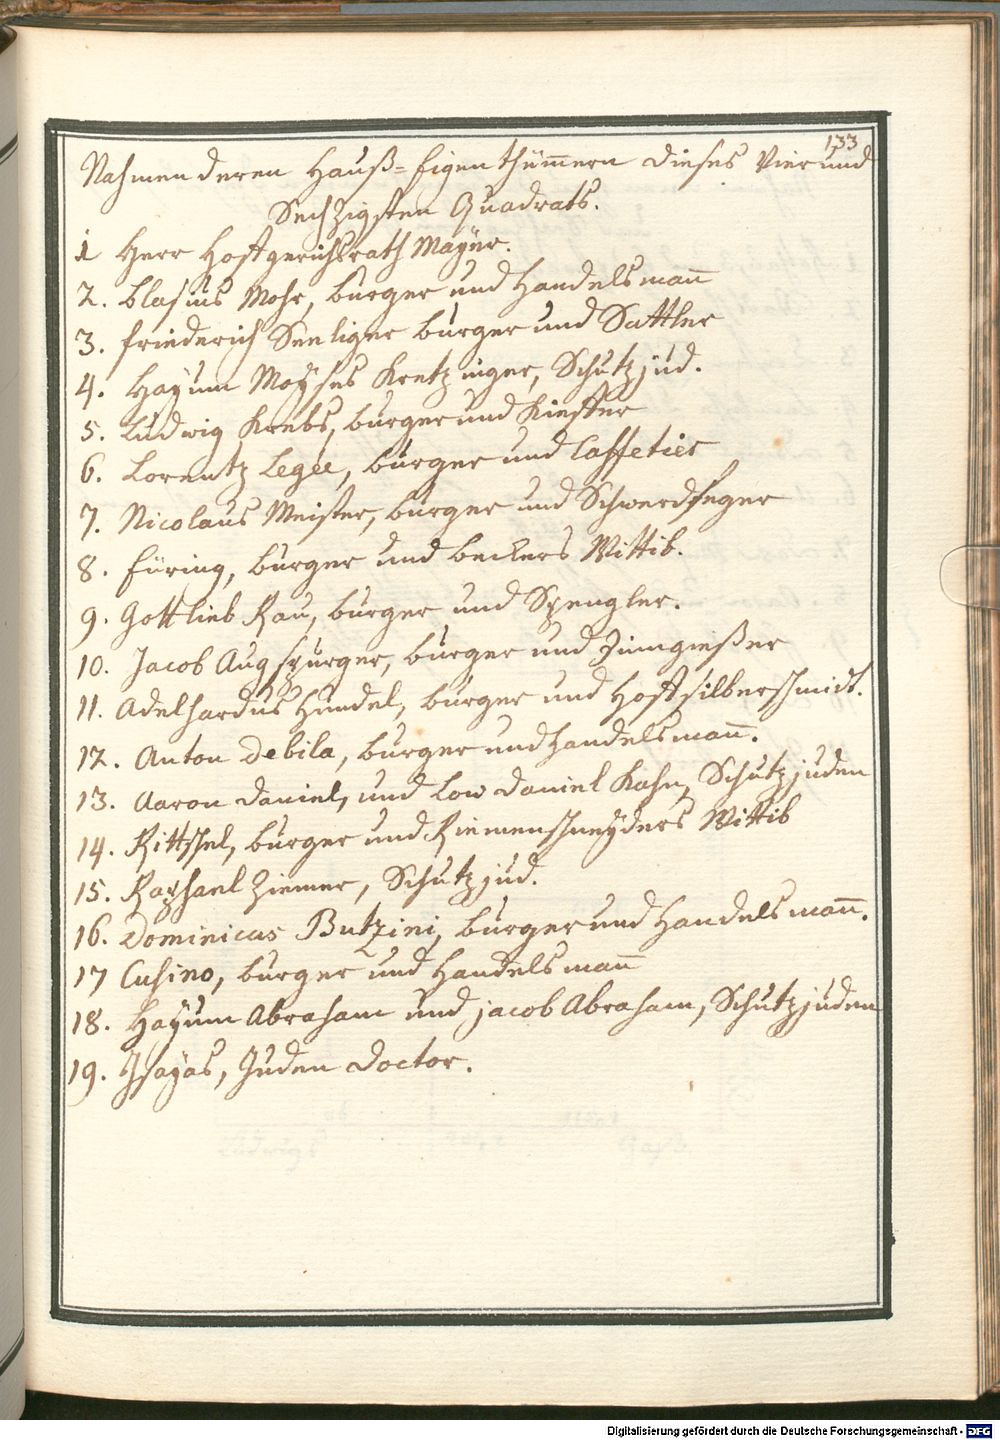 133
Nahmen deren Hauß=Eigenthümern dieses Vierund
Sechzigsten Quadrats.
1 Herr Hofgerichtsrath Mayer.
2. Blasius Mohr, burger und Handelsmann
3. Friederich Seeliger burger und Sattler
4. Hayum Moyses Kretzinger, Schutzjud.
5. Ludwig Krebs, burger und Kieffer
6. Lorentz Legée, burger und Caffetier
7. Nicolaus Meister, burger und Schwerdfeger
8. Füring, burger und beckers Wittib.
9. Gottlieb Rau, burger und Spengler.
10. Jacob Augspurger, burger und Zinngießer
11. Adelhardus Hundel, burger und Hoffsilberschmidt.
12. Anton Debila, burger und handelsmann.
13. Aaron Daniel, und Low Daniel Kahn, Schutzjuden
14. Rittschel, burger und Riemenschneyders Wittib
15. Raphael Ziemer, Schutzjud.
16. Dominicus Butzini, burger und Handelsmann.
17 Cusino, burger und Handelsmann
18. Hayum Abraham und jacob Abraham, Schutzjuden
19. Isayas, Juden Doctor.
Digitalisierung gefördert durch die Deutsche Forschungsgemeinschaft - DFG